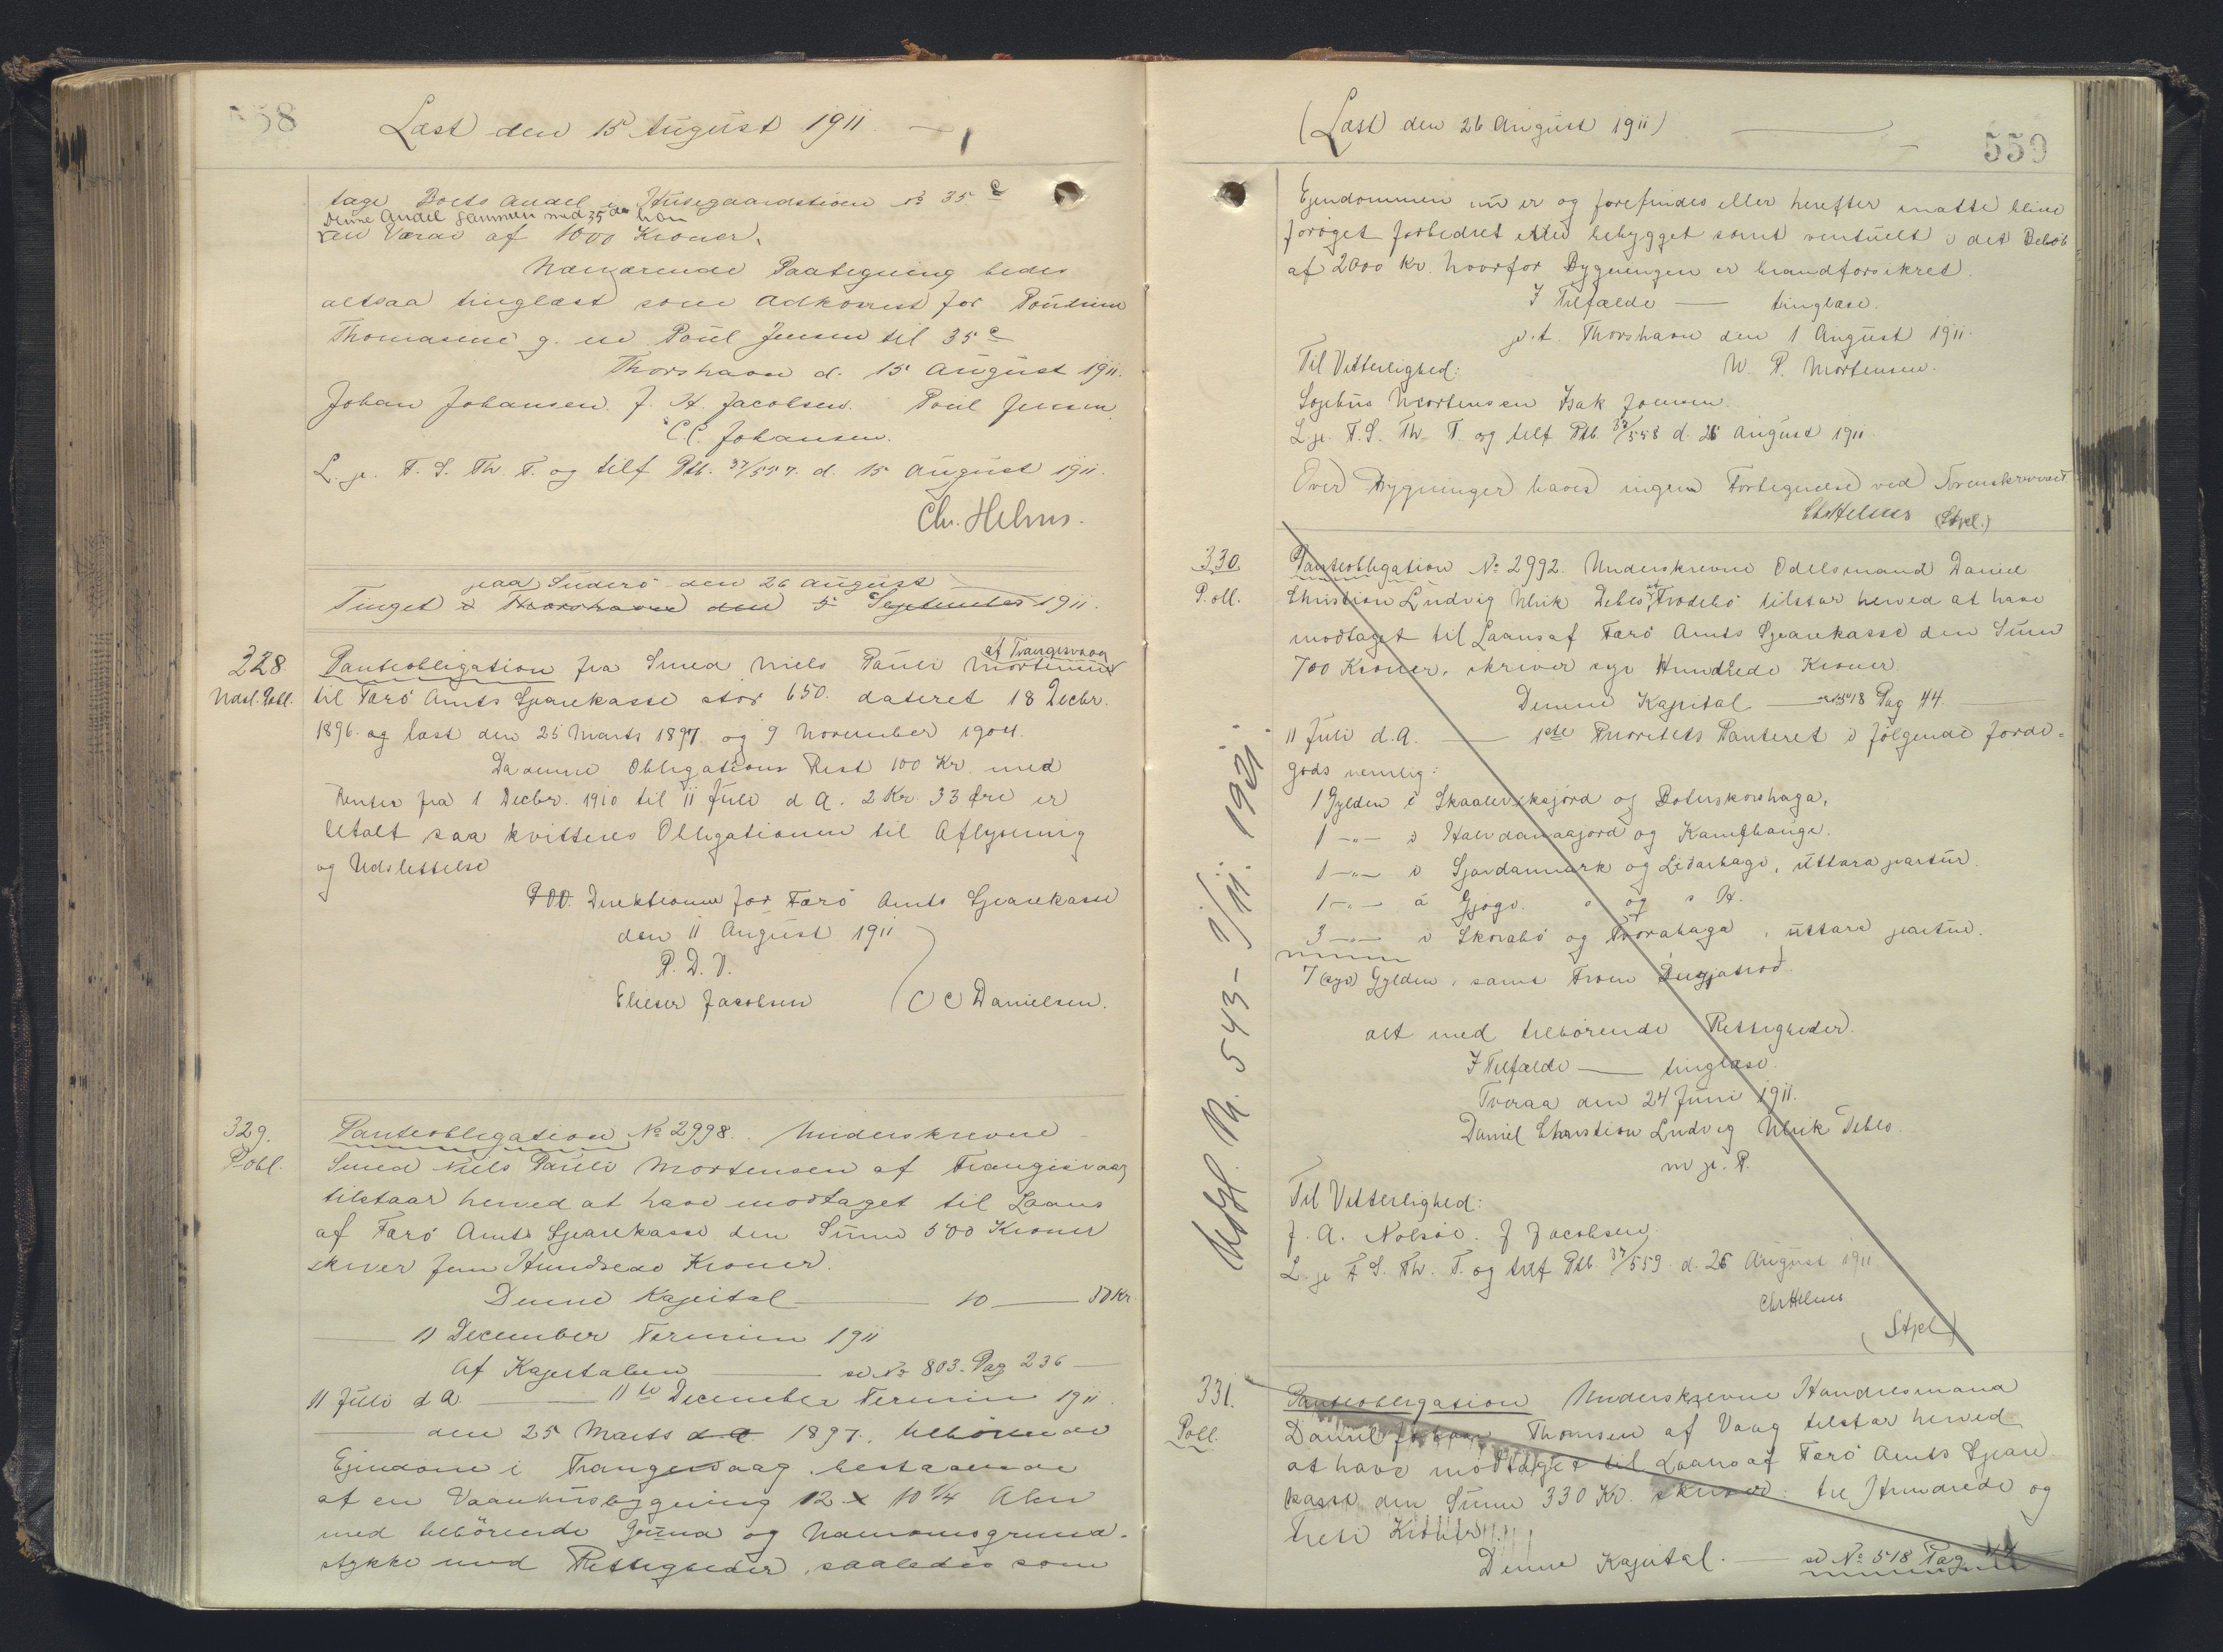 558
Læst den 15 August 1911.
tage Boets Andel i Husegaardstioen № 35 c
Denne Andel sammen med 35 har
en Værdi af 1000 Kroner.
Nærværende Paategning bedes
altsaa tinglæst som Adkomst for Pouline
Thomasine g. m. Poul Jensen til 35 c
Thorshavn d. 15 August 1911.
Johan Johansen. J. H. Jacobsen. Poul Jensen
C.C. Johansen.
L. p. F. S. Th. T. og tilf Ptb. 37/557 d. 15 August 1911.
Chr. Helms.
paa Suderö den 26 August
Tinget i Thorshavn den 5 September 1911.
328
Udsl. Pobl.
Panteobligation fra Smed Niels Pauli Mortensen af Trangisvaag
til Færö Amts Sparekasse stor 650. dateret 18 Decbr.
1896 og læst den 25 Marts 1897 og 9 November 1904.
Da denne Obligations Rest 100 Kr. med
Renter fra 1 Decbr. 1910 til 11 Juli d A. 2 Kr. 33 Øre er
betalt saa kvitteres Obligationen til Aflysning
og Udslettelse
Direktionen for Færö Amts Sparekasse
den 11 August 1911
P. D. V.
Elieser Jacobsen C C Danielsen.
329.
Pobl.
Panteobligation № 2998. Underskrevne
Smed Niels Pauli Mortensen af Trangisvaag
tilstaar herved at have modtaget til Laans
af Færö Amts Sparekasse den Sum 500 Kroner
skriver fem Hundrede Kroner.
Denne Kapital — 10 — 50 Kr.
— 11 December Termin 1911
Af Kapitalen — se № 803. Pag 236 —
11 Juli d A. — 11te December Termin 1911.
— den 25 Marts d. A. 1897. tilhörende
Ejendom i Trangisvaag bestaaende
af en Vaanhusbygning 12 x 10 1/4 Alen
med tilhörende Grund og Udenomsgrund-
stykke med Rettigheder, saaledes som
(Læst den 26 August 1911)
559
Ejendommen nu er og forefindes eller herefter maatte blive
foröget forbedret eller bebygget samt eventuelt i det Belöb
af 2000 Kr. hvorfor Bygningen er brandforsikret.
I Tilfælde — tinglæse.
p.t. Thorshavn den 1 August 1911.
Til Vitterlighed: W. P. Mortensen.
Sophus Mortensen Isak Joensen.
L. p. F. S. Th. T. og tilf Ptb. 37/558 d. 26 August 1911.
Over Bygninger haves ingen Fortegnelse ved Sorenskriveriet.
Chr Helms (Stpl.)
330.
P. obl.
Panteobligation № 2992. Underskrevne Odelsmand Daniel
Christian Ludvig Ulrik Debes af Frodebö tilstaar herved at have
modtaget til Laans af Færö Amts Sparekasse den Sum
700 Kroner, skriver syv Hundrede Kroner.
Denne Kapital — se № 518 Pag 44. —
11 Juli d. A. — 1ste Prioritets Panteret i fölgende Jorde-
gods nemlig:
1 Gylden i Skaaleviksjörd og Boterskorshaga,
1 -"- i Halvdanaajord og Kambhauge.
1 -"- i Sjovdanmark og Lidarhage, uttara partur.
1 -"- á Gjógv. " og " H.
3 -"- i Skorabö og Tvorahaga, uttara partur.
7 (syv) Gylden, samt Troen
alt med tilhörende Rettigheder.
I Tilfælde — tinglæse.
Tveraa den 24 Juni 1911.
Daniel Christian Ludvig Ulrik Debes
m. p. P.
Til Vitterlighed:
J. A. Nolsöe. J Jacobsen.
L. p. F S. Th. T. og tilf Ptb. 37/559 d. 26 August 1911
Chr Helms
(Stpl)
Udsl. N. 543 - 3/11. 1921.
331.
Pobl.
Panteobligation Underskrevne Handelsmand
Daniel Johan Thomsen af Vaag tilstaar herved
at have modtaget til Laans af Færö Amts Spare
kasse den Sum 330 Kr. skriver: tre Hundrede og
treti Kroner.
Denne Kapital. — se № 518 Pag 44